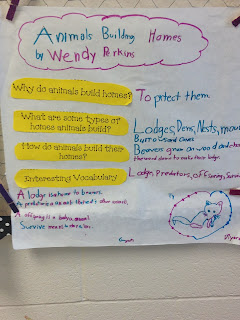 Animals Building Homes
by Wendy Perkins
Why do animals build homes?
To protect them
What are some types of homes animals build?
Lodges, Dens, Nests,
Burrows and Caves
How do animals build their homes?
Beavers gnaw on wood and
the wood down to make their lodges.
Interesting Vocabulary
Lodge, Predators, offspring, Surv
A lodge is a home to beavers.
A predator is an animal that eats other animals.
A offspring is a baby animal
Survive means to stay alive.